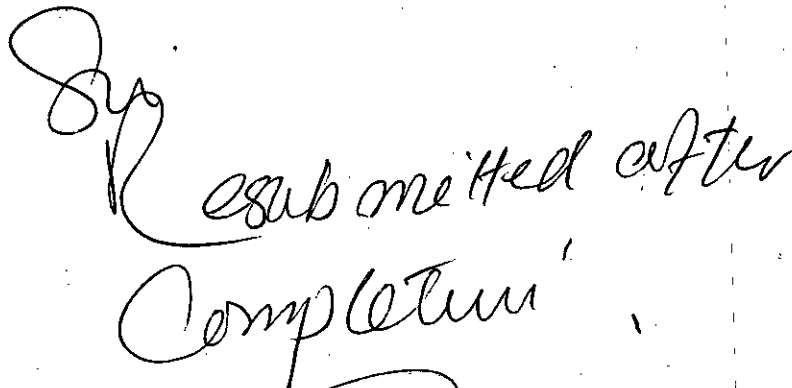 Sir
Resubmitted after
Completion.